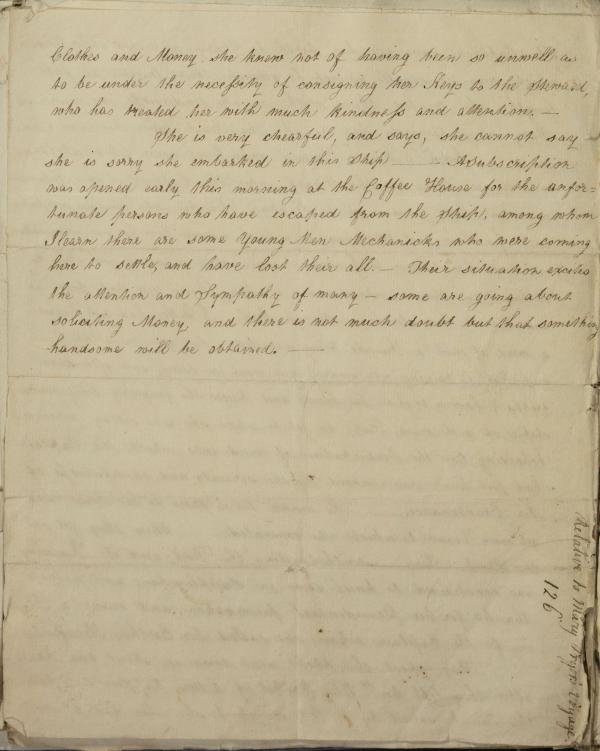 Clothes and Money she knew not of having been so unwell as
to be under the necessity of consigning her Keys to the Steward,
who has treated her with much kindness and attention. —
She is very chearful, and says, she cannot say
she is sorry she embarked in this Ship — — A Subscription
was opened early this morning at the Coffee House for the unfor=
tunate persons who have escaped from the Ship, among whom
I learn there are some Young Men Mechanicks who were coming
here to settle, and have lost their all. — Their situation excites
the attention and Sympathy of many — some are going about
soliciting Money, and there is not much doubt but that something
handsome will be obtained. —
Relative to Mary Fry's Voyage.
126